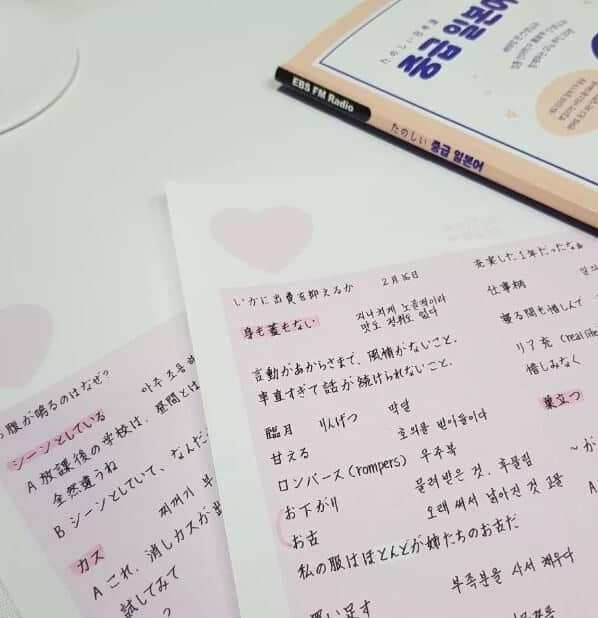 EBS FM Radio
たのしい 중급 일본어
たのしい日本語
중급 일본어
いかに出費を抑えるか 2月16日
身も蓋もない 지나치게 노골적이라
맛도 정취도 없다
言動があからさまで、風情がないこと.
率直すぎて話が続けられないこと.
臨月 りんげつ 막달
甘える 호의를 받아들이다
ロンパース (rompers) 우주복
お下がり 물려받은 것, 후물림
お古 오래 써서 낡아진 것 고물
私の服はほとんどが姉たちのお古だ
買い足す 부족분을 사서 채우다
充実した1年だったなぁ
仕事柄
寝る間も惜しんで
リア充 (real life
惜しみなく
巣立つ
~が
A
お腹が鳴るのはなぜ?
シーンとしている 아주 조용
A 放課後の学校は、昼間とは
全然違うね
B シーンとしていて、なんだ
カス 찌꺼기 부
A これ、消しカスが
試してみて
?